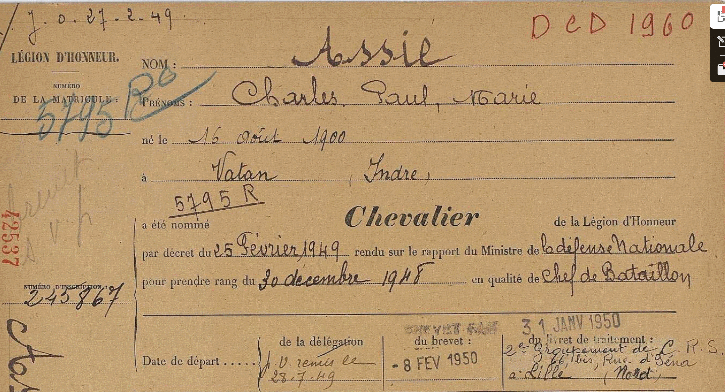 J.O. 27-2-49.
DCD 1960
LÉGION D'HONNEUR.
NOM : Assié
NUMÉRO
DE LA MATRICULE :
5795 R
PRÉNOMS : Charles, Paul, Marie
né le 16 août 1900
à Vatan (Indre)
5795 R
42537
Chevalier
a été nommé de la Légion d'Honneur
par décret du 25 Février 1949 rendu sur le rapport du Ministre de la défense Nationale
pour prendre rang du 30 decembre 1948 en qualité de Chef de Bataillon
NUMÉRO D'INSCRIPTION :
245867
31 JANV 1950
de la délégation du brevet : du livret de traitement :
Date de départ J.V. remis le
28-7-49
-8 FEV 1950
2e Groupement de C.R.S.
66 bis, Rue d'Iéna
à Lille (Nord)